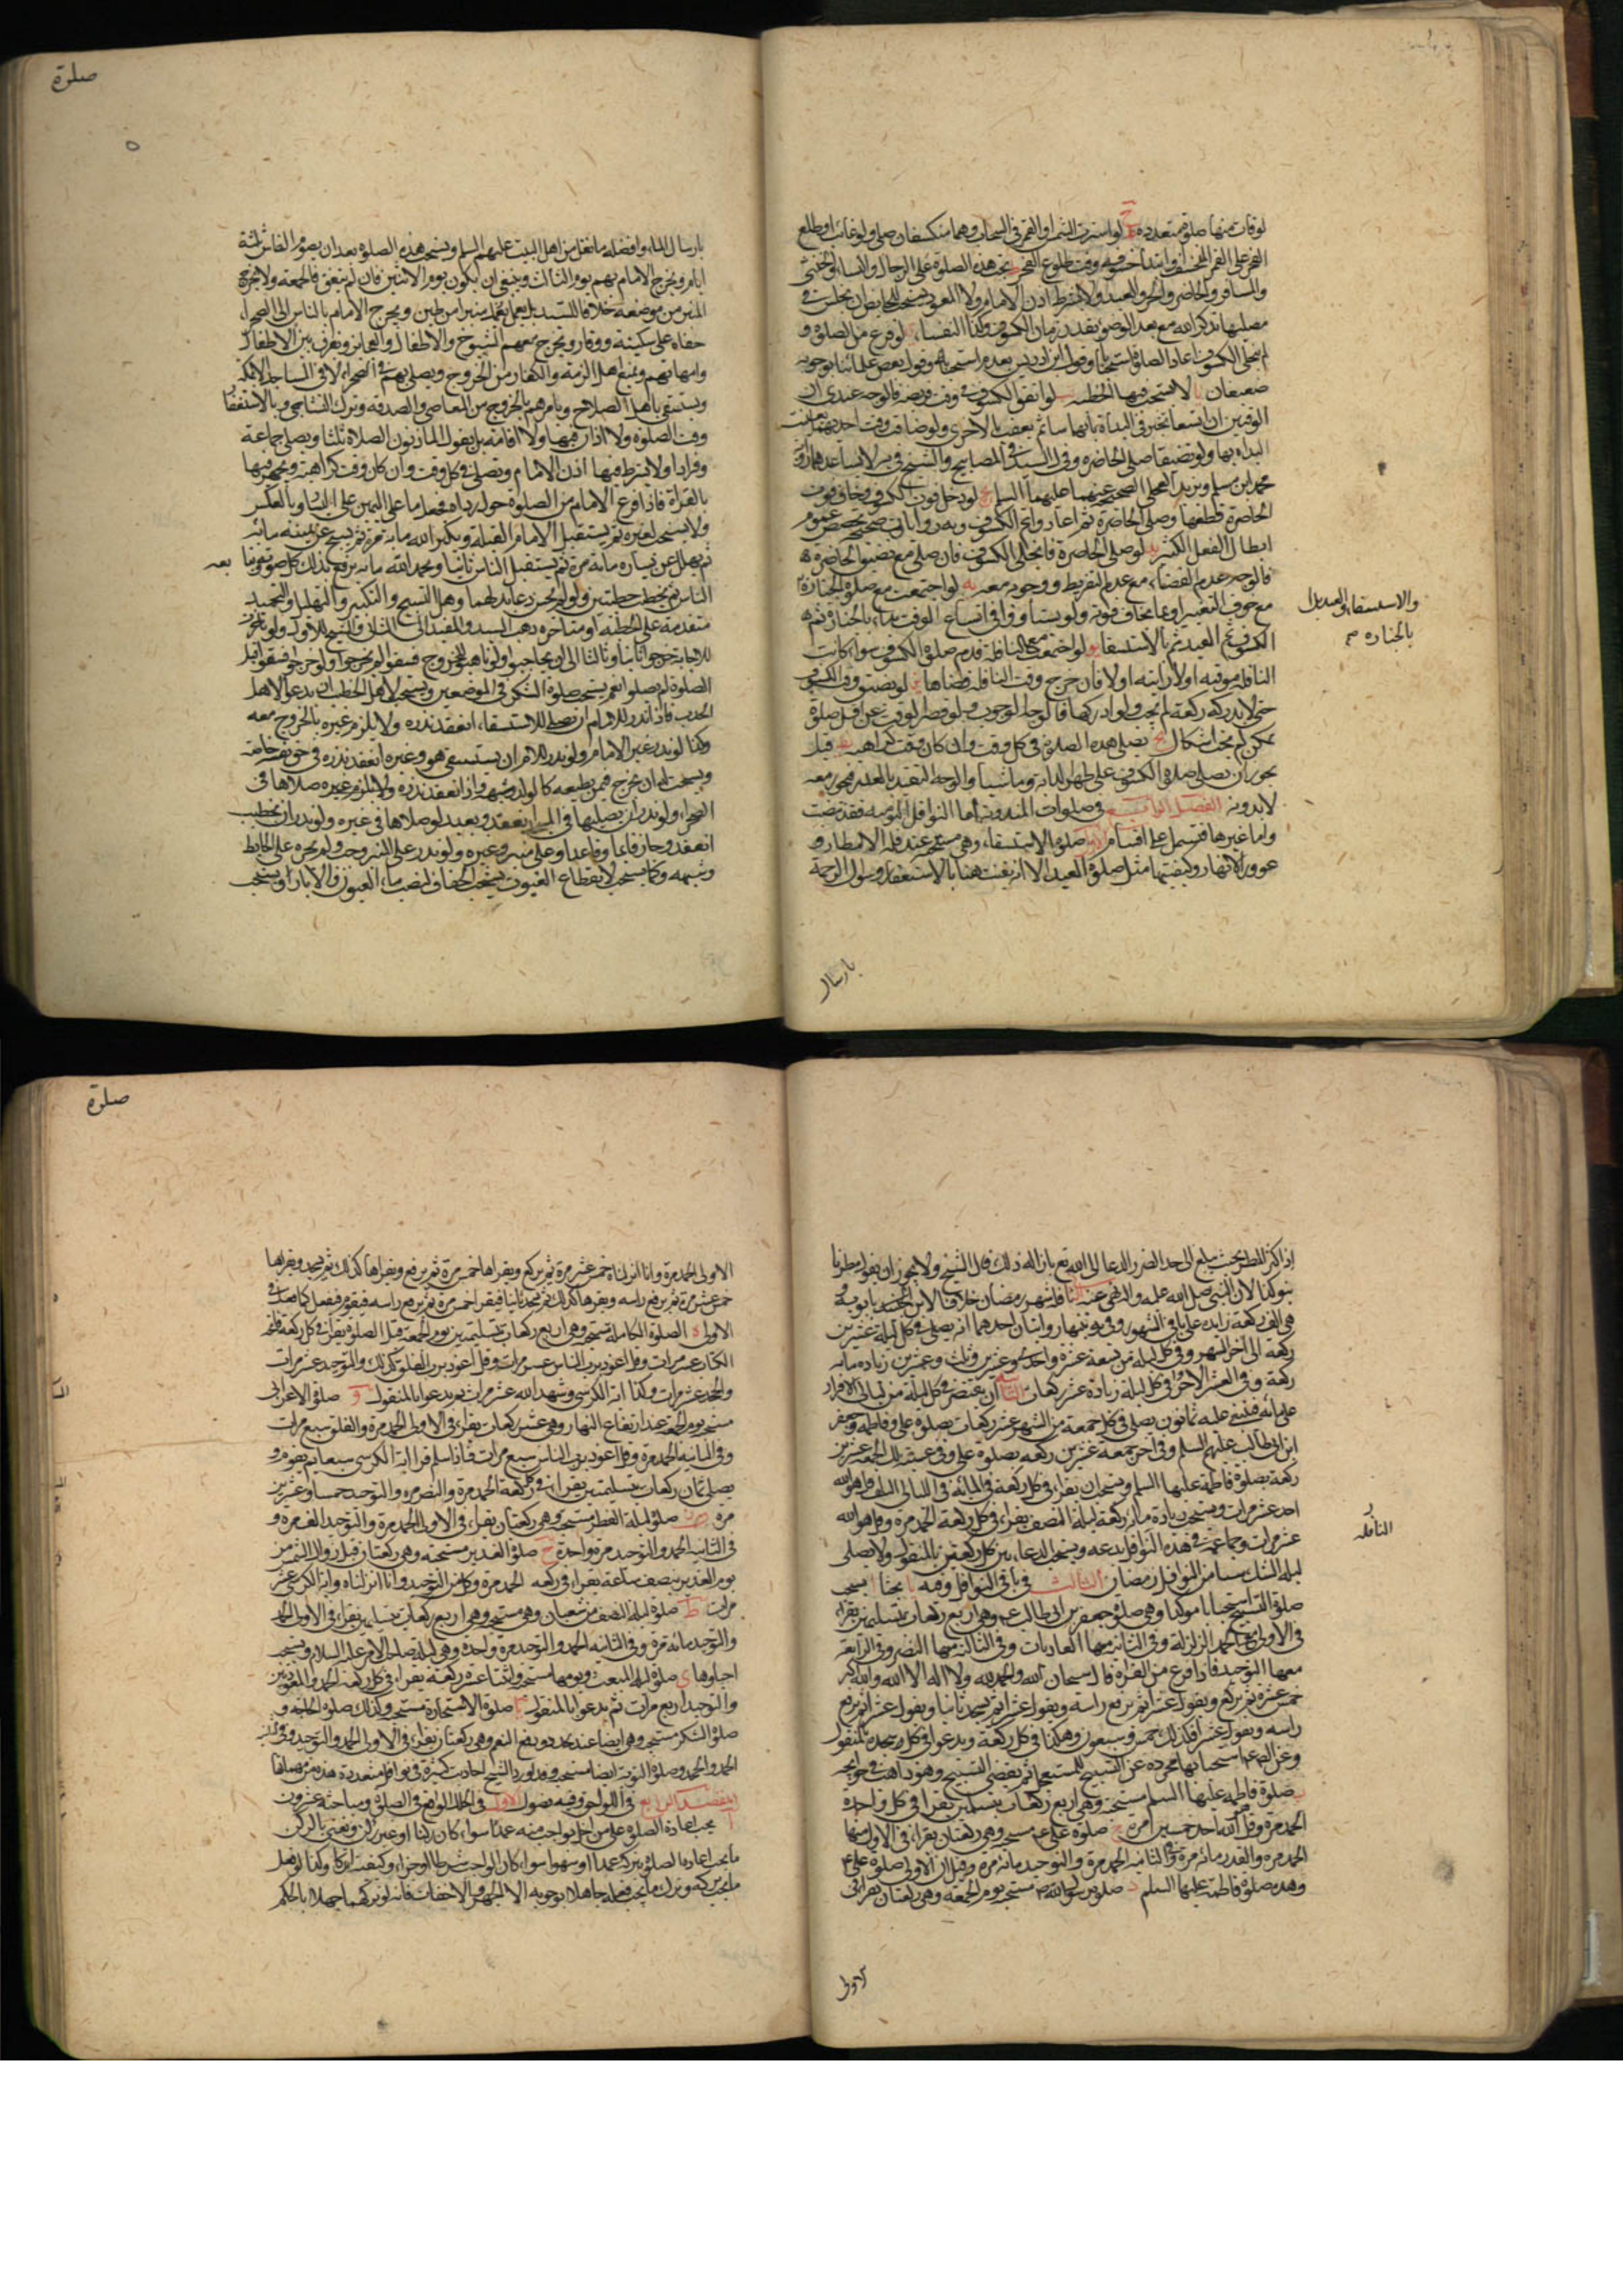 لو فات منها صلوة متعددة ح لو استترت الشمس او القمر فى السحاب وهما منكسفان صلى ولو غابت او طلع
الفجر على القمر المنخسف او ابتدأ خسوفه وقت طلوع الفجر ط تجب هذه الصلوة على الرجال والنساء والخنثى
والمسافر والحاضر والحر والعبد ولا يشترط اذن الامام ولا المصر ويستحب للحايض ان تجلس فى
مصليها تذكر الله مع بعد الوضوء بقدر زمان الكسوف وكذا النفساء لو فرغ من الصلوة و
لم ينجلى الكسوف اعاد الصلوة استحبابا وقول ابن ادريس بعدم استحبابه وقول بعض علمائنا بوجوبه
ضعيفان يا لا يستحب فيها الخطبة لو اتفق الكسوف فى وقت فريضة فالوجه عندى ان
الوقتين ان اتسعا تخير فى البدأة بايهما شاء ثم يعقب بالاخرى ولو ضاق وقت احديهما تعينت
البداءة بها ولو تضيقا صلى الحاضرة وقول السيد فى المصابيح والشيخ فى
محمد بن مسلم وبريد العجلى الصحيحة عنهما عليهما السلام يج لو دخل فى صلوة الكسوف وخاف فوت
الحاضرة قطعها وصلى الحاضرة ثم اعاد صلوة الكسوف وبه روايات صحيحة تخصص عموم
ابطال الفعل الكثير يد لو صلى الحاضرة فانجلى الكسوف فان صلى مع تضيق الحاضرة
فالوجه عدم القضاء مع عدم التفريط ووجوده معه يه لو اجتمعت مع صلوة الجنازة
مع خوف التغير او بما يخاف فوته ولو تساووا فى اتساع الوقت بدأ بالجنازة ثم
الكسوف ثم العيد ثم بالاستسقاء يو لو اجتمعت مع النافلة قدم صلوة الكسوف سواء كانت
النافلة موقتة او لا راتبة او لا فان خرج وقت النافلة قضاها يز لو تضيق وقت الكسوف
حتى لا يدرك ركعة لم تجب ولو ادركها فالوجه الوجوب ولو قصر الوقت عن اقل صلوة
يمكن لم تجب على اشكال يح تصلى هذه الصلوة فى كل وقت وان كان وقت كراهية يط قيل
يجوز ان تصلى صلوة الكسوف على ظهر الدابة وماشيا والوجه التقييد بالعذر فيجوز معه
لا بدونه الفصل الرابع فى صلوات المندوبة اما النوافل اليومية فقد مضت
واما غيرها فتشتمل على اقسام الاول صلوة الاستسقاء وهى مستحبة عند قلة الامطار و
غور الانهار وكيفيتها مثل صلوة العيد الا انه يقنت هنا بالاستغفار وسؤال الرحمة
والاستسقاء والعيدين
بالجنازة
بارسال
صلوة
بارسال الماء وافضله ما نقل من اهل البيت عليهم السلم ويستحب هذه الصلوة بعد ان يصوم الناس ثلثة
ايام ويخرج الامام بهم يوم الثالث وينبغى ان يكون يوم الاثنين فان لم يتفق فالجمعة ولا يخرج
المنبر من موضعه خلافا للسيد بل يعمل شبه منبر من طين ويخرج الامام بالناس الى الصحراء
حفاة على سكينة ووقار ويخرج معهم الشيوخ والاطفال والعجايز ويفرق بين الاطفال
وامهاتهم ويمنع اهل الذمة والكفار من الخروج ويصلى بهم فى الصحراء لا فى المساجد الا بمكة
ويستسقى باهل الصلاح ويأمرهم بالخروج من المعاصى والصدقة وترك التشاجر وبالاستغفار
وقت الصلوة ولا اذان فيها ولا اقامة بل يقول المؤذنون الصلاة ثلثا ويصلى جماعة
وفرادا ولا يشترط فيها اذن الامام وتصلى فى كل وقت وان كان وقت كراهية ويجهر فيها
بالقراة فاذا فرغ الامام من الصلوة حول رداءه فجعل ما على اليمين على اليسار وبالعكس
ولا يستحب لغيره ثم يستقبل الامام القبلة ويكبر الله مائة مرة ثم يسبح عن يمينه مائة
ثم يهلل عن يساره مائة مرة ثم يستقبل الناس ثانيا ويحمد الله مائة يرفع بذلك كل صوته وتوقيا
الناس ثم يخطب خطبتين ولو لم يحسن دعا بدلهما وهل التسبيح والتكبير والتهليل والتحميد
متقدمة على الخطبة او متأخرة ذهب السيد والمفيد الى الثانى والشيخ للاول ولو تأخرت
للاجابة خرجوا ثانيا وثالثا الى ان يجابوا ولو تأهبوا للخروج فسقوا لم يخرجوا ولو خرجوا فسقوا قبل
الصلوة لم يصلوا نعم يستحب صلوة الشكر فى الموضعين ويستحب لاهل الخصب ان يدعوا لاهل
الجدب فاذا نذر الامام ان يصلى للاستسقاء انعقد نذره ولا يلزم غيره بالخروج معه
وكذا لو نذر غير الامام ولو نذر الامام ان يستسقى هو وغيره انعقد نذره فى حق نفسه خاصة
ويستحب له ان يخرج فيمن يطيعه كالولد وشبهه واذا انعقد نذره ولا يلزم غيره صلاها فى
الصحراء ولو نذر ان يصليها فى المسجد انعقد ويعيد لو صلاها فى غيره ولو نذر ان يخطب
انعقد وجاز قائما وقاعدا وعلى منبر وغيره ولو نذر على المنبر وجب ولم يجزه على الحايط
وشبهه وكما يستحب لانقطاع الغيوث يستحب لجفاف مياه العيون والابار ويستحب
بعد
اذا كثر المطر بحيث يبلغ الى حد الضرر الدعا الى الله تع بازالة ذلك قال الشيخ ولا يجوز ان يقول مطرنا
بنو كذا لان النبى صلى الله عليه واله نهى عنه الثانى نافلة شهر رمضان خلافا لابن بابويه
هى الف ركعة زايدة على باقى الشهور وفى توزيعها روايتان احدهما انه يصلى فى كل ليلة عشرين
ركعة الى اخر الشهر وفى كل ليلة من تسعة عشرة واحدى وعشرين وثلث وعشرين زيادة مائة
ركعة وفى العشر الاخر فى كل ليلة زيادة عشر ركعات الثانية ان يقتصر فى كل ليلة من ليالى الافراد
على مائة فتبقى عليه ثمانون يصلى فى كل جمعة من الشهر عشر ركعات بصلوة على وفاطمة وجعفر
ابن ابى طالب عليهم السلم وفى اخر جمعة عشرين ركعة بصلوة على وفى عشية تلك الجمعة عشرين
ركعة بصلوة فاطمة عليها السلم ويستحب ان يقرأ فى كل ركعة فى المائة فى الليالى الثلث قل هو الله
احد عشر مرات ويستحب زيادة مائة ركعة ليلة النصف يقرأ فى كل ركعة الحمد مرة وقل هو الله
عشر مرات وجماعة فى هذه النوافل بدعة ويستحب الدعاء بين كل ركعتين بالمنقول ولا يصلى
ليلة الشك شيئا من نوافل رمضان الثالث فى باقى النوافل وفيه يا بحثا ا يستحب
صلوة التسبيح استحبابا مؤكدا وهى صلوة جعفر بن ابى طالب ع وهى اربع ركعات بتسليمتين يقرأ
فى الاولى مع الحمد الزلزلة وفى الثانية منها العاديات وفى الثالثة منها النصر وفى الرابعة
معها التوحيد فاذا فرغ من القراة قال سبحان الله والحمد لله ولا اله الا الله والله اكبر
خمس عشرة ثم يركع ويقول عشرا ثم يرفع راسه ويقول عشرا ثم يسجد ثانيا ويقول عشرا ثم يرفع
راسه ويقول عشرا فذلك خمس وسبعون وهكذا فى كل ركعة ويدعوا فى كل سجدة بالمنقول
وعن الص ع استحبابها مجردة عن التسبيح للمستعجل ثم يقضى التسبيح وهو ذاهب فى حوايجه
ب صلوة فاطمة عليها السلم مستحبة وهى اربع ركعات بتسليمتين يقرأ فى كل واحدة
الحمد مرة وقل هو الله احد خمسين مرة ج صلوة على ع مستحبة وهى ركعتان يقرأ فى الاولى منهما
الحمد مرة والقدر مائة مرة وفى الثانية الحمد مرة والتوحيد مائة مرة وقيل ان الاولى صلوة على ع
وهذه صلوة فاطمة عليها السلم د صلوة رسول الله ص مستحبة يوم الجمعة وهى ركعتان يقرأ فى
النافلة
الاولى
صلوة
الاولى الحمد مرة وانا انزلناه خمس عشرة مرة ثم يركع ويقراها خمس عشرة مرة ثم يرفع ويقراها كذلك ثم يسجد ويقراها
خمس عشر مرة ثم يرفع راسه ويقرها كذلك ثم يسجد ثانيا فيقرا خمس عشرة مرة ثم يرفع راسه فيقوم فيفعل كما فعل فى
الاولى ه الصلوة الكاملة مستحبة وهى اربع ركعات بتسليمتين يوم الجمعة قبل الصلوة يقرأ فى كل ركعة فاتحة
الكتاب عشر مرات وقل اعوذ برب الناس عشر مرات وقل اعوذ برب الفلق كذلك والتوحيد عشر مرات
والجحد عشر مرات وكذا اية الكرسى وشهد الله عشر مرات ثم يدعوا بالمنقول و صلوة الاعرابى
مستحبة يوم الجمعة عند ارتفاع النهار وهى عشر ركعات يقرأ فى الاولى الحمد مرة والفلق سبع مرات
وفى الثانية الحمد مرة وقل اعوذ برب الناس سبع مرات فاذا سلم قرا اية الكرسى سبعا ثم يقوم و
يصلى ثمان ركعات بتسليمتين يقرأ فى كل ركعة الحمد مرة والنصر مرة والتوحيد خمسا وعشرين
مرة ز صلوة ليلة الفطر مستحبة وهى ركعتان يقرأ فى الاولى الحمد مرة والتوحيد الف مرة و
فى الثانية الحمد والتوحيد مرة واحدة ح صلوة الغدير مستحبة وهى ركعتان قبل زوال الشمس من
يوم الغدير بنصف ساعة يقرأ فى ركعة الحمد مرة وكل من التوحيد وانا انزلناه واية الكرسى عشر
مرات ط صلوة ليلة النصف من شعبان وهى مستحبة وهى اربع ركعات بتسليمتين يقرأ فى الاولى الحمد
والتوحيد مائة مرة وفى الثانية الحمد والتوحيد مرة واحدة وهى ليلة
احياوها ى صلوة ليلة المبعث ويومها مستحبة واثنتا عشرة ركعة يقرأ فى كل ركعة الحمد والمعوذتين
والتوحيد اربع مرات ثم يدعوا بالمنقول يا صلوة الاستخارة مستحبة وكذلك صلوة الحاجة و
صلوة الشكر مستحبة وهى ايضا عند تجدد نعم وهى ركعتان يقرأ فى الاولى الحمد والتوحيد وفى الثانية
الحمد والجحد وصلوة التوبة ايضا مستحبة وقد اورد الشيخ احاديث كثيرة فى نوافل متعددة هذه من مصافها
المقصد الرابع فى اللواحق وفيه فصول الاول فى الخلل الواقع فى الصلوة ومباحثه عشرون
ا يجب اعادة الصلوة على من اخل بواجب منه عمدا سواء كان ركنا او غير ركن ونعنى بالركن
ما يجب اعادة الصلوة بتركه عمدا او سهوا سواء كان الواجب شرطا او جزءا وكيفية او تركا وكذا لو فعل
ما يجب تركه وترك ما يجب فعله جاهلا بوجوبه الا الجهر والاخفات فانه لو تركهما جهلا بالحكم